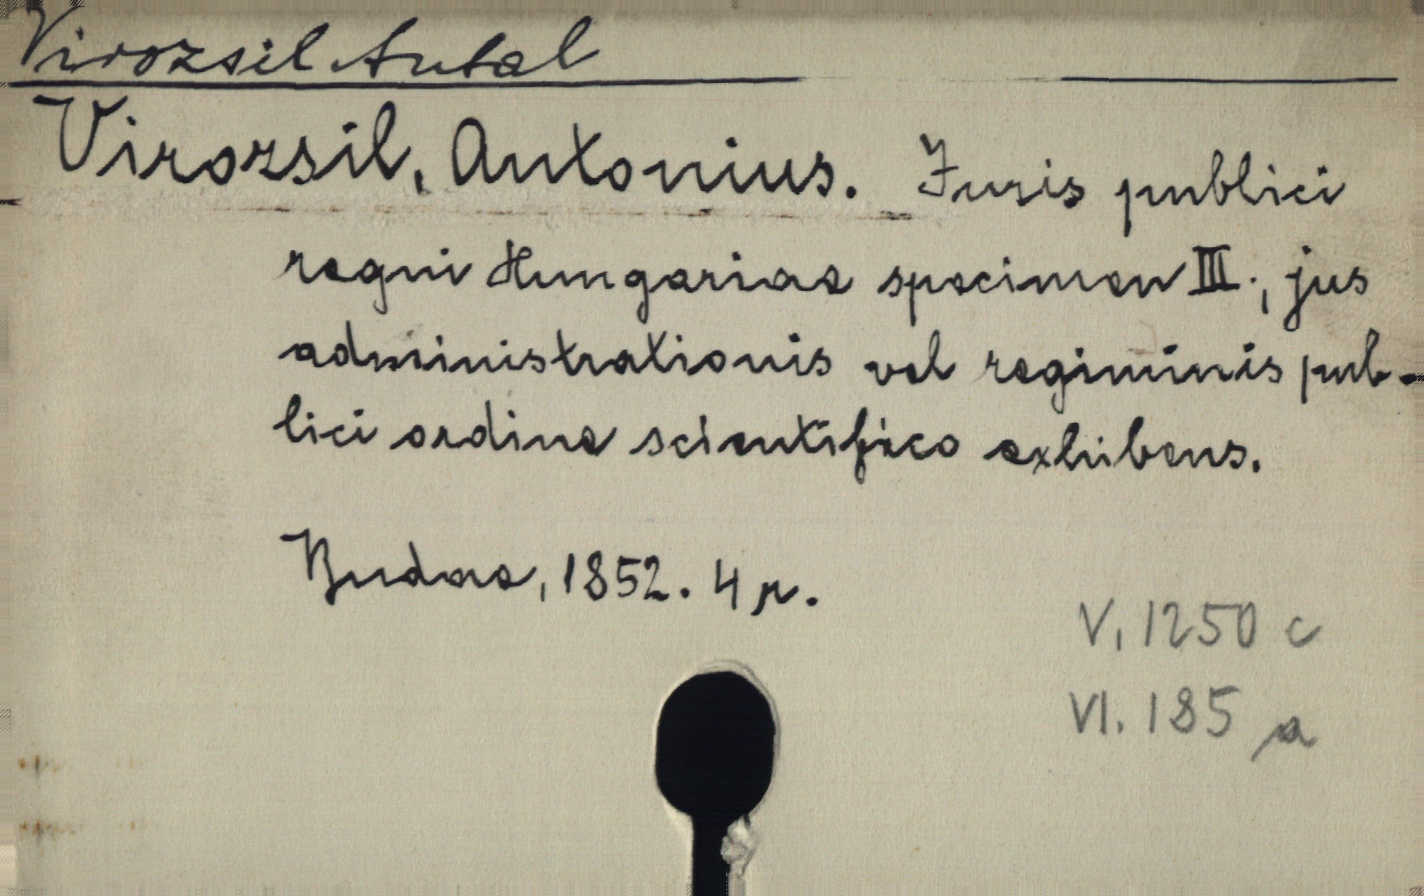 Virozsil Antal
Virozsil, Antonius. Juris publici
regni Hungariae specimen III., jus
administrationis vel regiminis pub-
lici ordine scientifico exhibens.
Budae, 1852. 4 r.
V, 1250 c
VI. 185 a